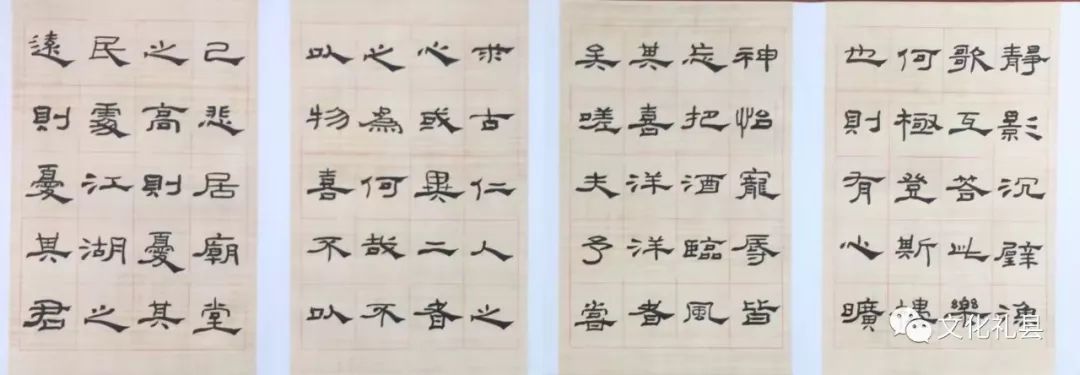 靜影沉璧漁
歌互答此樂
何極登斯樓
也則有心曠
神怡寵辱皆
忘把酒臨風
其喜洋洋者
矣嗟夫予嘗
求古仁人之
心或異二者
之為何哉不
以物喜不以
己悲居廟堂
之高則憂其
民處江湖之
遠則憂其君
文化礼县